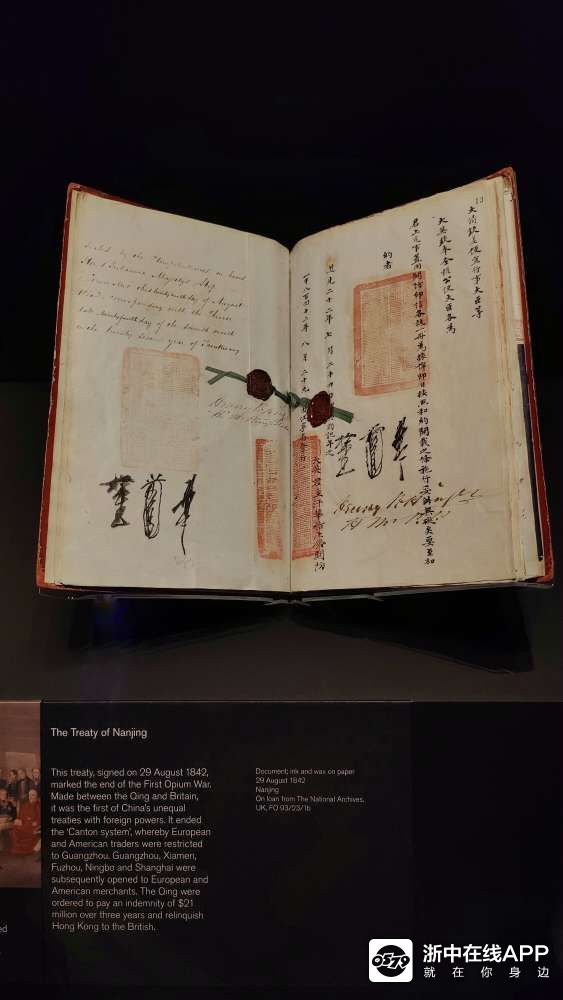 by the Plenipotentiaries on board
Her Britannic Majesty's Ship
this twenty ninth day of August
corresponding with the Chinese
date twenty fourth day of the seventh month
in the twenty second year of Taoukwang
13
大清欽差便宜行事大臣等
大英欽奉全權公使大臣各為
君上定事蓋用關防印信各執一冊為據俾即日按照和約開載之條施行妥辦無礙矣要至和
約者
道光二十二年七月二十四日即英國記年之
一千八百四十二年八月二十九日
大英君主汗華
The Treaty of Nanjing
This treaty, signed on 29 August 1842,
marked the end of the First Opium War.
Made between the Qing and Britain,
it was the first of China's unequal
treaties with foreign powers. It ended
the 'Canton system', whereby European
and American traders were restricted
to Guangzhou. Guangzhou, Xiamen,
Fuzhou, Ningbo and Shanghai were
subsequently opened to European and
American merchants. The Qing were
ordered to pay an indemnity of $21
million over three years and relinquish
Hong Kong to the British.
Document; ink and wax on paper
29 August 1842
Nanjing
On loan from The National Archives,
UK, FO 93/23/1b
浙中在线APP
就在你身边